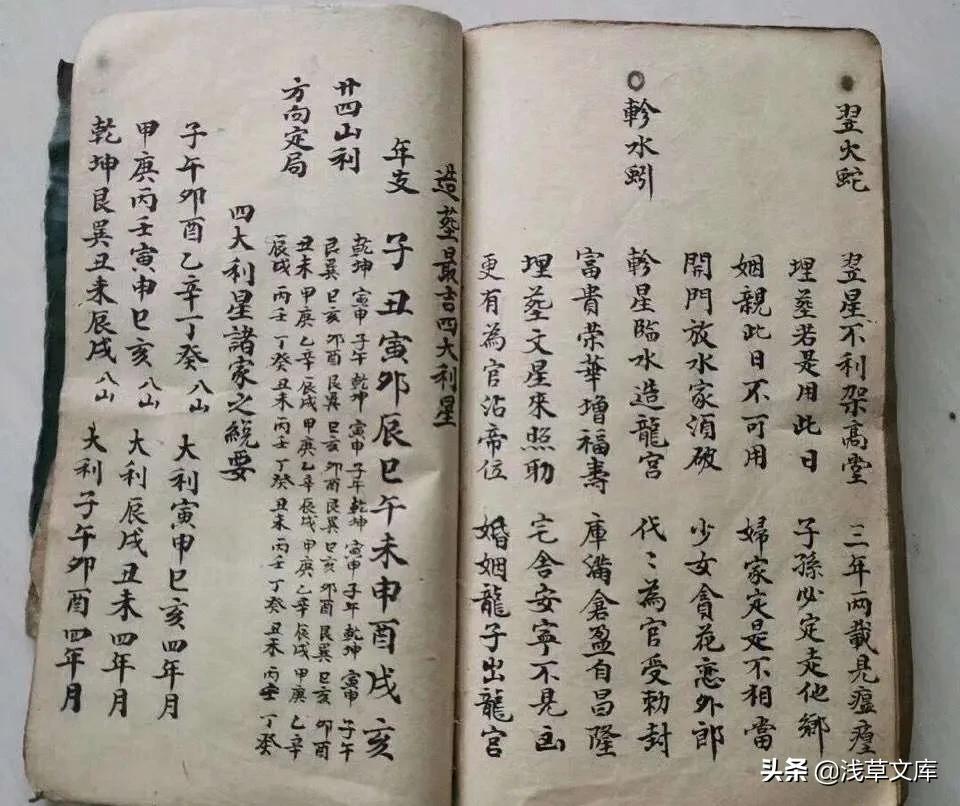 翌火蛇
翌星不利架高堂 三年兩載見瘟
埋塟若是用此日 子孫必定走他鄉
姻親此日不可用 婦家定是不相當
開門放水家須破 少女貪花恋外郎
軫水蚓
軫星臨水造龍宮 代〻為官受勅封
富貴荣華增福壽 庫滿倉盈自昌隆
埋塟文星來照助 宅舍安寧不見凶
更有為官沾帝位 婚姻龍子出龍宮
造塟最吉四大利星
年支 子丑寅卯辰巳午未申酉戌亥
廿四山利
方向定局
乾坤 寅申 子午 乾坤 寅申 子午 乾坤 寅申 子午 乾坤 寅申 子午
艮巽 巳亥 卯酉 艮巽 巳亥 卯酉 艮巽 巳亥 卯酉 艮巽 巳亥 卯酉
丑未 甲庚 乙辛 辰戌 甲庚 乙辛 辰戌 甲庚 乙辛 辰戌 甲庚 乙辛
辰戌 丙壬 丁癸 丑未 丙壬 丁癸 丑未 丙壬 丁癸 丑未 丙壬 丁癸
四大利星諸家之統要
子午卯酉乙辛丁癸 八山 大利寅申巳亥四年月
甲庚丙壬寅申巳亥 八山 大利辰戌丑未四年月
乾坤艮巽丑未辰戌 八山 大利子午卯酉四年月
头条 @浅草文库